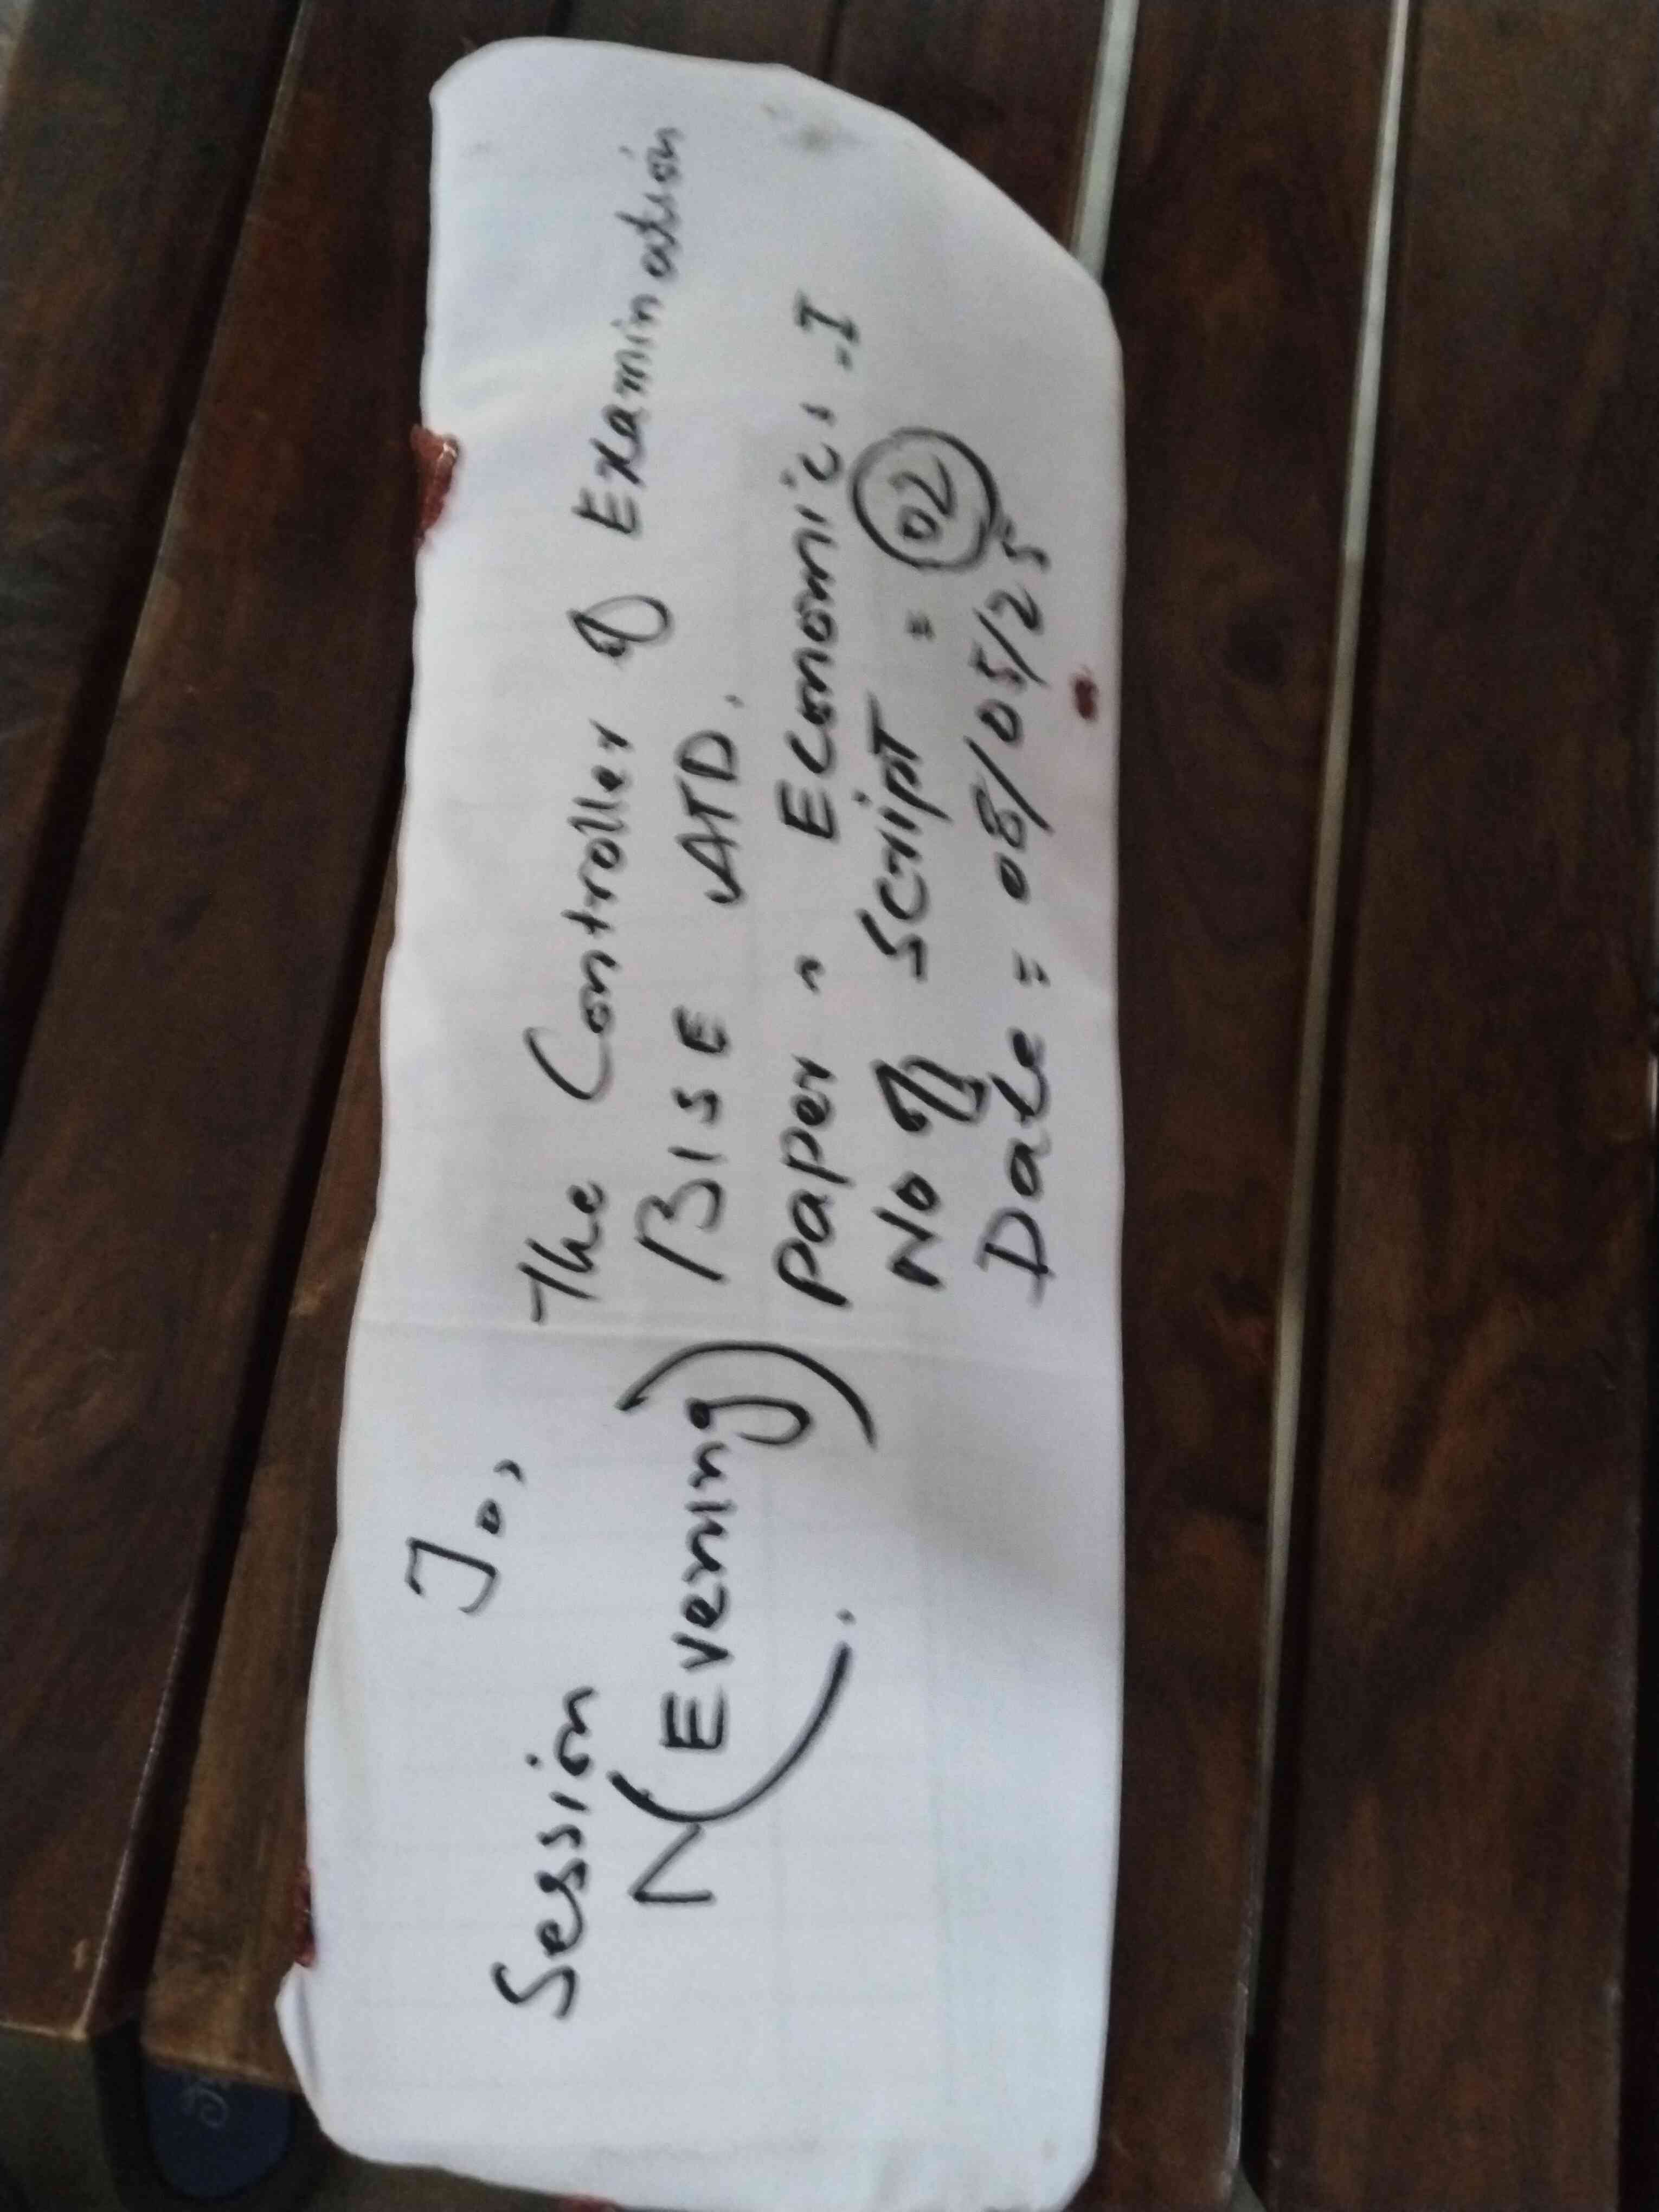 To,
The Controller of Examination
BISE ATD.
Session
(Evening)
Paper " Economics-I
No of Script = 02
Date = 08/05/25